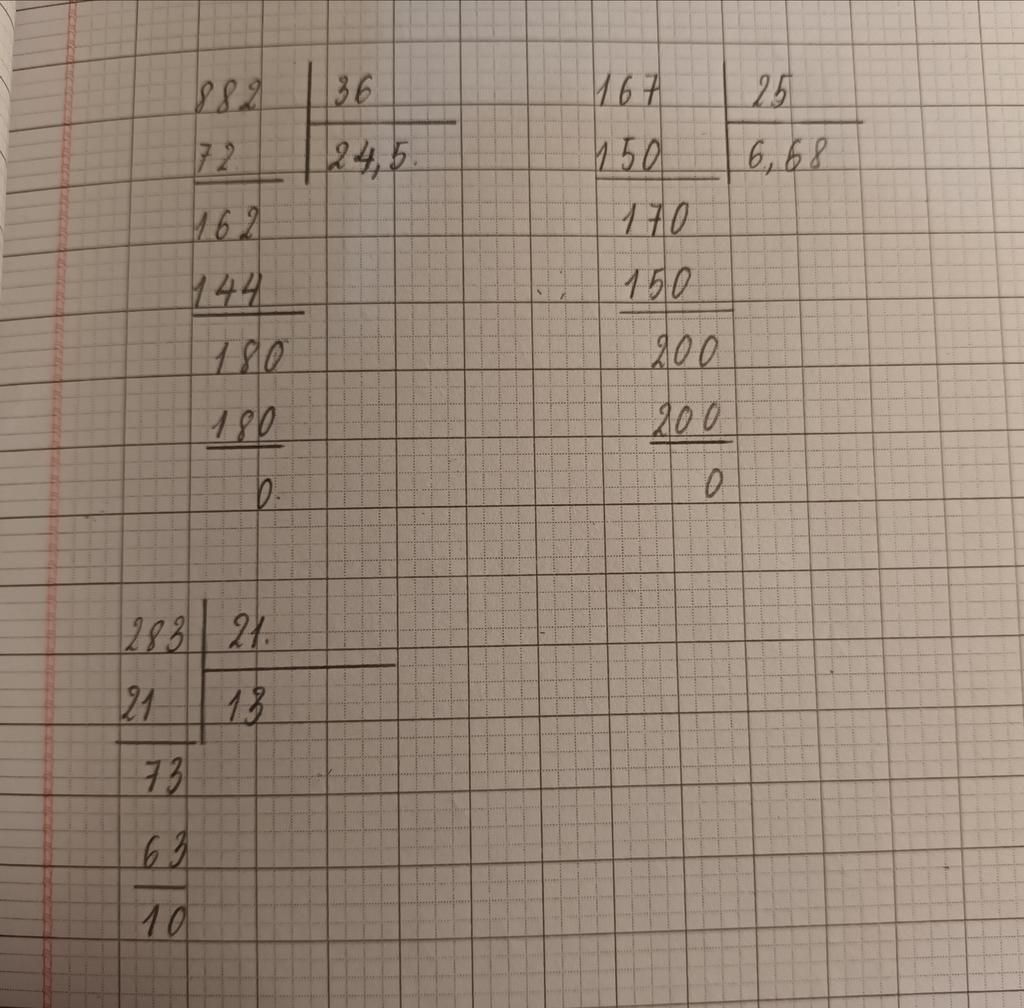 882 36
72 24,5.
162
144
180
180
0.
167 25
150 6,68
170
150
200
200
0
283 21.
21 13
73
63
10